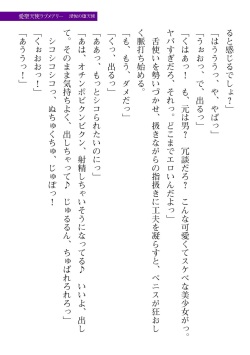 愛聖天使ラブメアリー　淫悦の堕天使
ると感じるでしょ？」
「はううっ、や、やばっ」
「うぉおっ、で、出るっ」
「くはあっ！　も、元は男？　冗談だろ？　こんな可愛くてスケベな美少女がっ。
ヤバすぎだろ、それっ。どこまでエロいんだよぉっ」
舌使いを勢いづかせ、扱きながらの指扱きに工夫を凝らすと、ペニスが狂おし
く脈打ち始める。
「も、もう、ダメだっ」
「くっ、出るっ」
「ああっ、もっとシコられたいのにっ」
「あは、オチンポビクンビクン、射精しちゃいそうになってる♪　いいよ、出し
て。そのまま気持ちよく、出しちゃって♪　じゅるるん、ちゅばれろれろっ」
シコシコシコっ、ぬちゅくちゅ、じゅぽっ！
「くぉおおっ！」
「あううっ！」